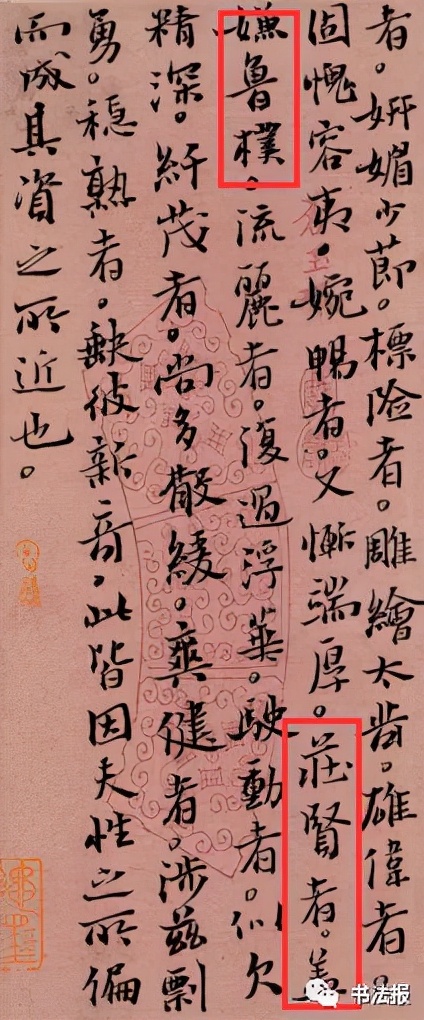 者。妍媚少節。標險者。雕繪太苛。雄偉者。
固愧容夷。婉暢者。又慚端厚。莊賢者。蓋
嫌魯樸。流麗者。復過浮華。駛動者。似欠
精深。纖茂者。尚多散緩。爽健者。涉茲剽
勇。穩熟者。缺彼新奇。此皆因夫性之所偏
而成其資之所近也。
书法报